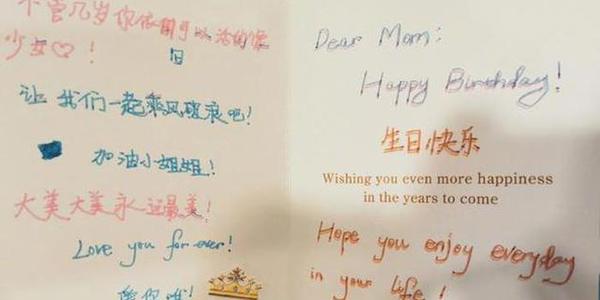 不管几岁你依旧可以活的像
少女♡!
旧
让我们一起乘风破浪吧!
加油小姐姐!
大美大美永远最美!
Love you for ever!
爱你哦!
Dear Mom:
Happy Birthday!
生日快乐
Wishing you even more happiness
in the years to come
Hope you enjoy everyday
in your life!